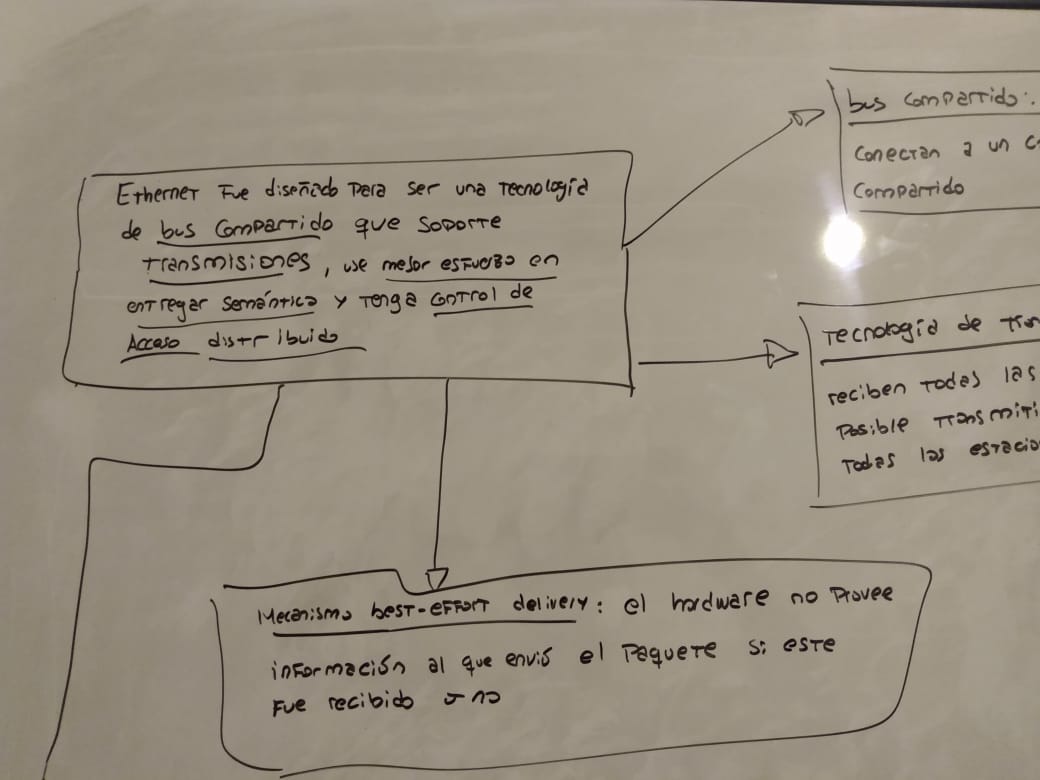 Ethernet fue diseñado para ser una tecnología
de bus compartido que soporte
transmisiones, use mejor esfuerzo en
entregar semántica y tenga control de
Acceso distribuido
bus compartido:
Conectan a un
Compartido
Tecnología de
reciben todas las
Posible
Todas las
Mecanismo best-effort delivery: el hardware no provee
información al que envió el paquete si este
fue recibido o no